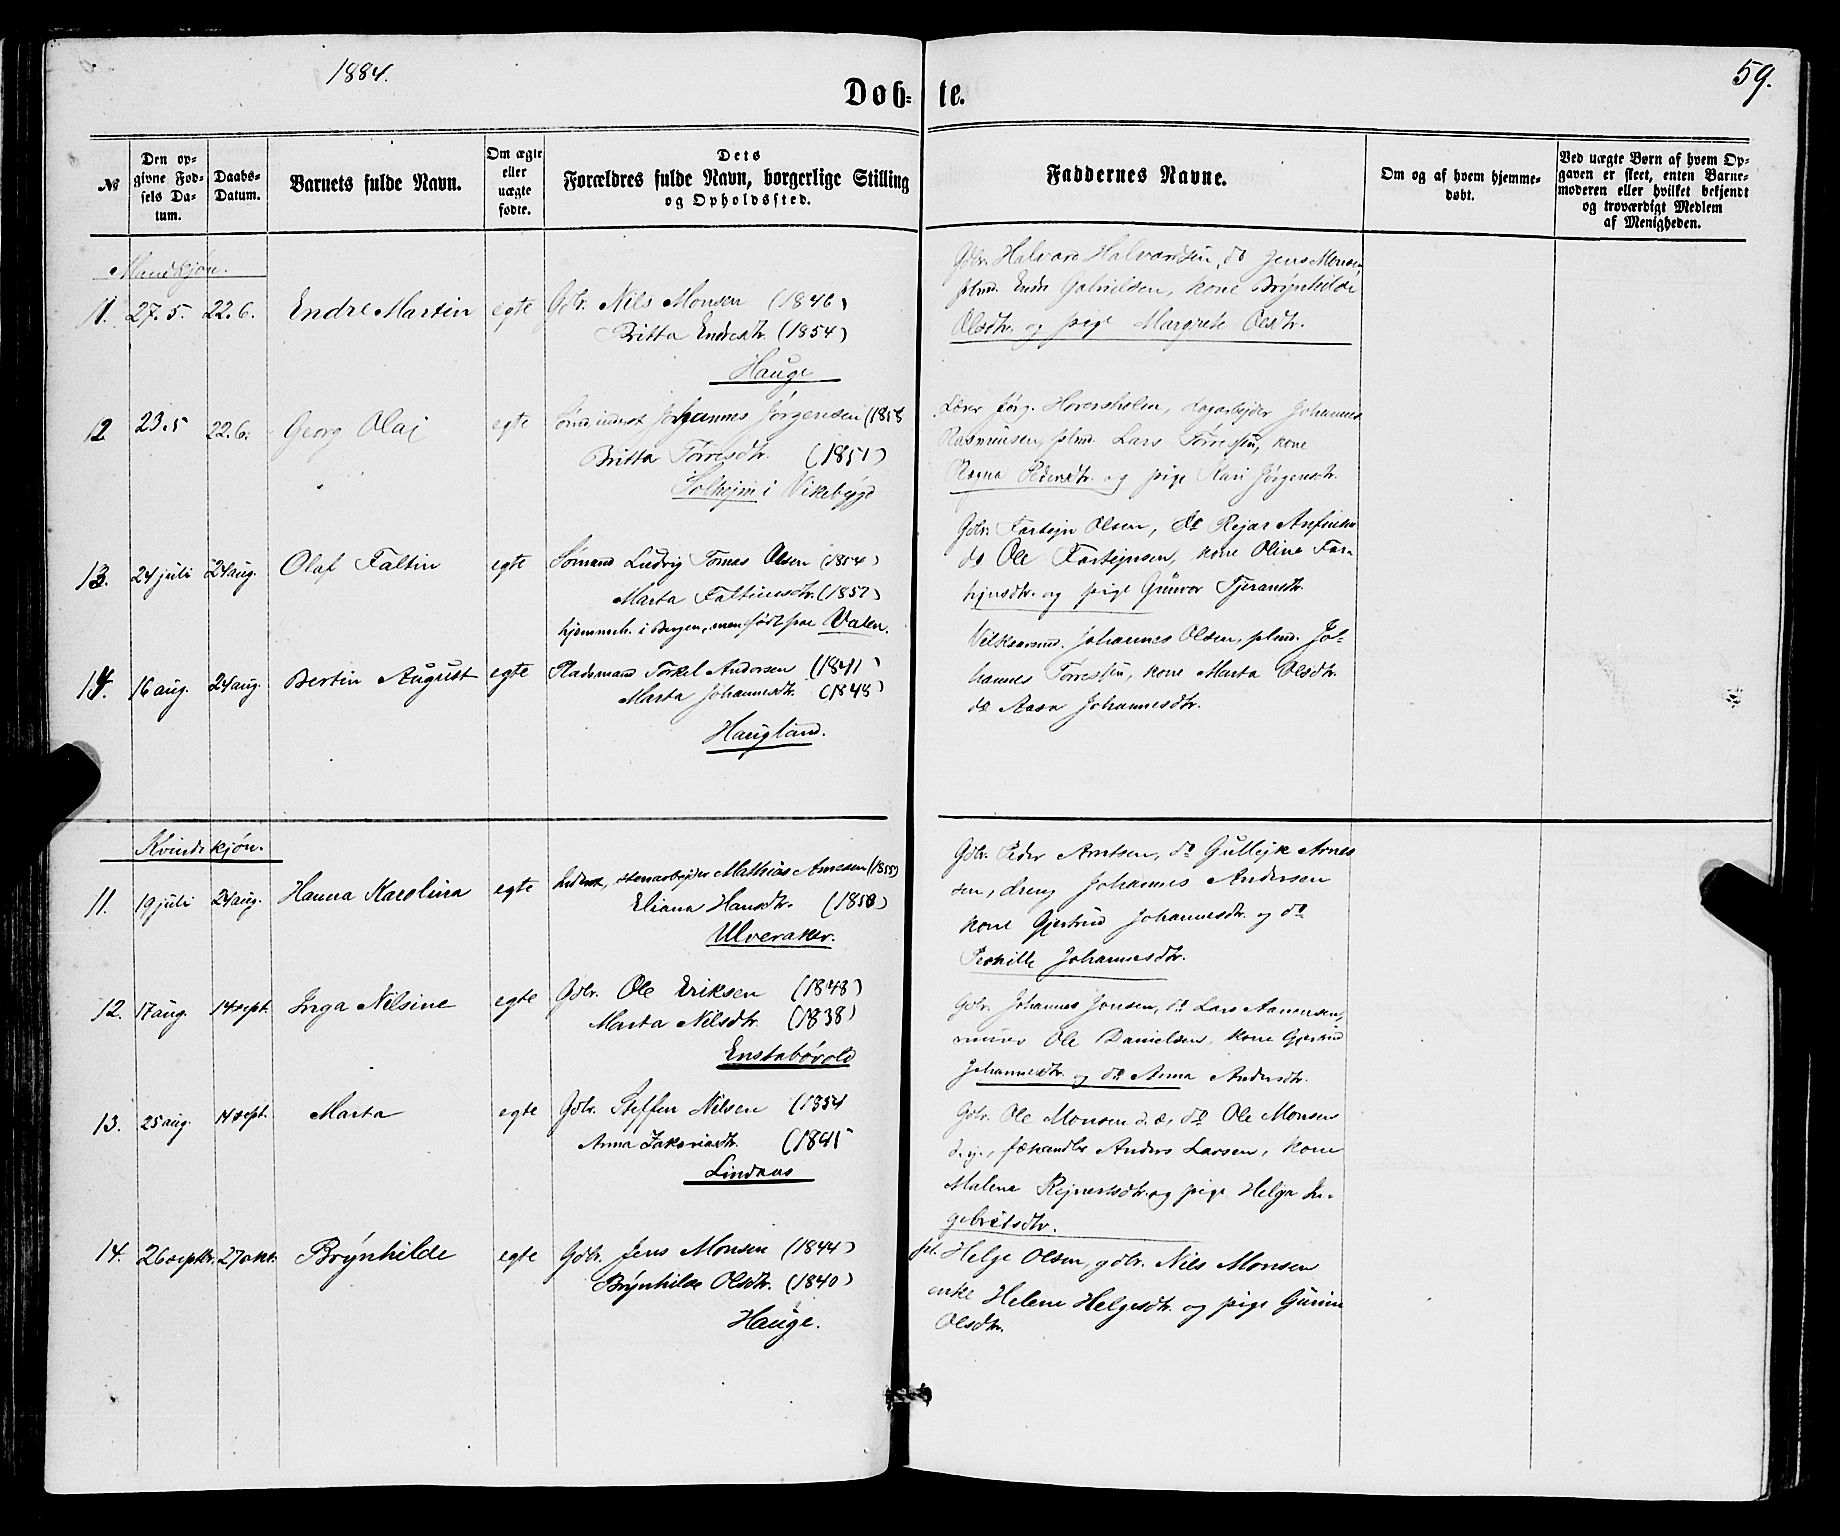 1884.
59.
Døb- te.
№
Den op-
givne Fød-
sels Da-
tum.
Daabs-
Datum.
Barnets fulde Navn.
Om ægte
eller
uægte
fødte.
Dets
Forældres fulde Navn, borgerlige Stilling
og Opholdssted.
Faddernes Navne.
Om og af hvem hjemme-
døbt.
Ved uægte Børn af hvem Op-
gaven er skeet, enten Barne-
moderen eller hvilket bekjendt
og troværdigt Medlem
af Menigheden.
Mandkjøn.
11. 27.5. 22.6. Endre Martin egte Gdbr. Nils Monsen (1846)
Britta Endresdtr. (1854)
Hauge
Gdbr. Halvard Halvardsen, do Jens Monsen,
plmd. Endre Gabrielsen, kone Brÿnhilde
Olsdtr. og pige Margrete Olsdtr.
12 23.5 22.6. Georg Olaj egte Johannes Jørgensen (1858
Britta Torresdtr. (1851)
Solhejm i Vikebÿgd
Lærer Jørg. Hoversholm, dagarbejder Johannes
Rasmussen, plmd. Lars Torressen, kone
Pedersdtr. og pige Kari Jørgensdtr.
13. 24 juli 24 aug. Olaf Faltin egte Sømand Ludvig Tomas Olsen (1854)
Marta Faltinsdtr. (1852)
hjemmeh. i Bergen, men født paa Valen.
Gdbr. Fartejn Olsen, do Rejar Anfinsen
do Ole Fartejnsen, kone Olina Far-
tejnsdtr. og pige Gunvor Tjeransdtr.
14. 16 aug. 24 aug. Bertin Aŭgŭst egte Pladsmand Torkel Andersen (1841)
Marta Johannesdtr. (1848)
Haugland.
Johannes Olsen, plmd. Jo-
hannes Torressen, kone Marta Olsdtr.
do Aasa Johannesdtr.
Kvindekjøn.
11. 19 juli 24 aug. Hanna Karolina egte Inderst, stenarbejder Mathias Arnesen (1855)
Eliana Hansdtr. (1850)
Ulveraker.
Gdbr. Peder Arntsen, do Gŭllejk Arnes
sen, dreng Johannes Andersen
kone Gjertrud Johannesdtr. og do
Pernille Johannesdtr.
12. 17 aug. 14 sept. Inga Nilsine egte Gdbr. Ole Eriksen (1848)
Marta Nilsdtr. (1838)
Enstabøvold
Gdbr. Johannes Jonsen, do Lars Aamunsen,
murer Ole Danielsen, kone Gjertrud
Johannesdtr. og do Anna Andersdtr.
13. 25 aug. 14 sept. Marta egte Gdbr. Steffen Nilsen (1854
Anna Sakariasdtr. (1845
Lindaas
Gdbr. Ole Monsen d.æ., do Ole Monsen
d.y., fæhandler Anders Larsen, kone
Malena Rejnertsdtr. og pige Helga In-
gebretsdtr.
14. 26 septbr. 27 okt. Brÿnhilde egte Gdbr. Jens Monsen (1844)
Brÿnhilde Olsdtr. (1840)
Haŭge.
Helge Olsen, gdbr. Nils Monsen
enke Helene Helgesdtr. og pige
Olsdtr.